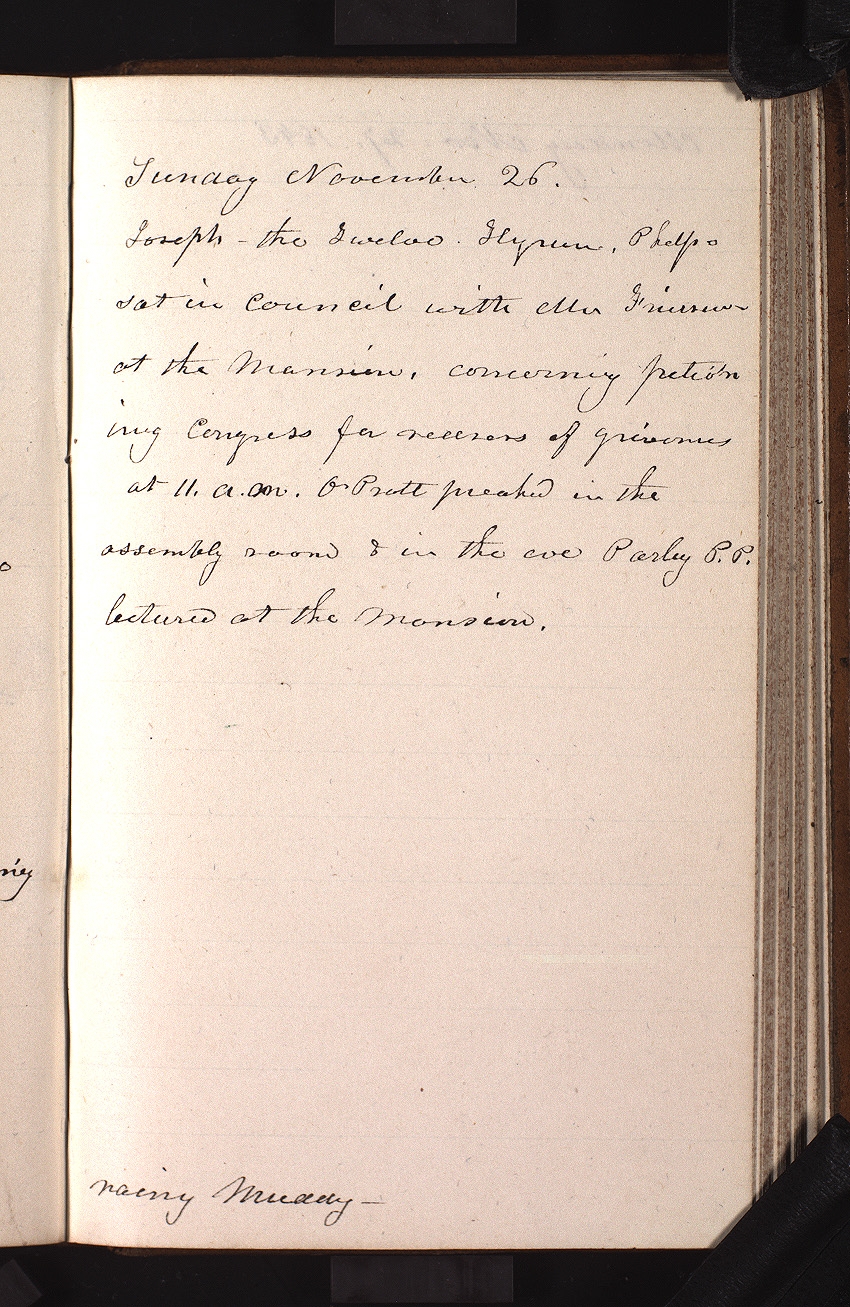 Sunday November 26.
Joseph - the Twelve. Hyrum, Phelps
sat in council with Mr Frierson
at the Mansion, concerning petition
ing Congress for redress of grivences
at 11. a.m. O Pratt preached in the
assembly room & in the eve Parley P. P.
lectured at the Mansion.
rainy Muddy—